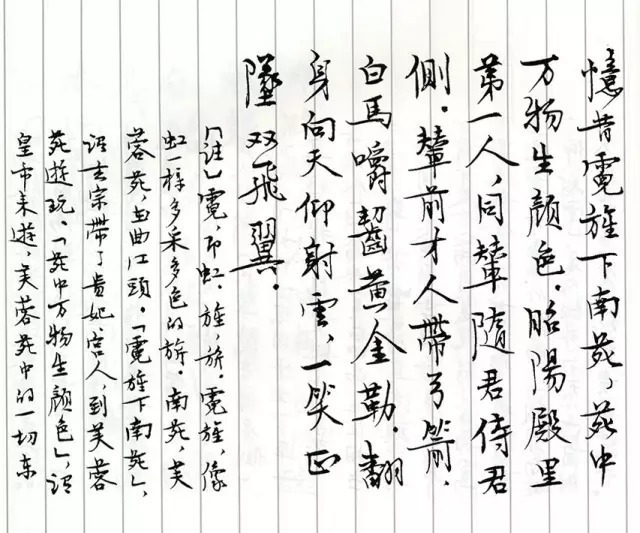 憶昔霓旌下南苑，苑中
万物生顏色．昭陽殿里
第一人，同輦隨君侍君
側．輦前才人帶弓箭．
白馬嚼齧黃金勒．翻
身向天仰射雲，一笑正
墜双飛翼．
「註」霓，即虹．旌，旂．霓旌，像
虹一樣多采多色的旂．南苑，芙
蓉苑，在曲江頭．「霓旌下南苑」，
謂玄宗帶了貴妃、宮人，到芙蓉
苑遊玩．「苑中万物生顏色」，謂
皇帝來遊，芙蓉苑中的一切東